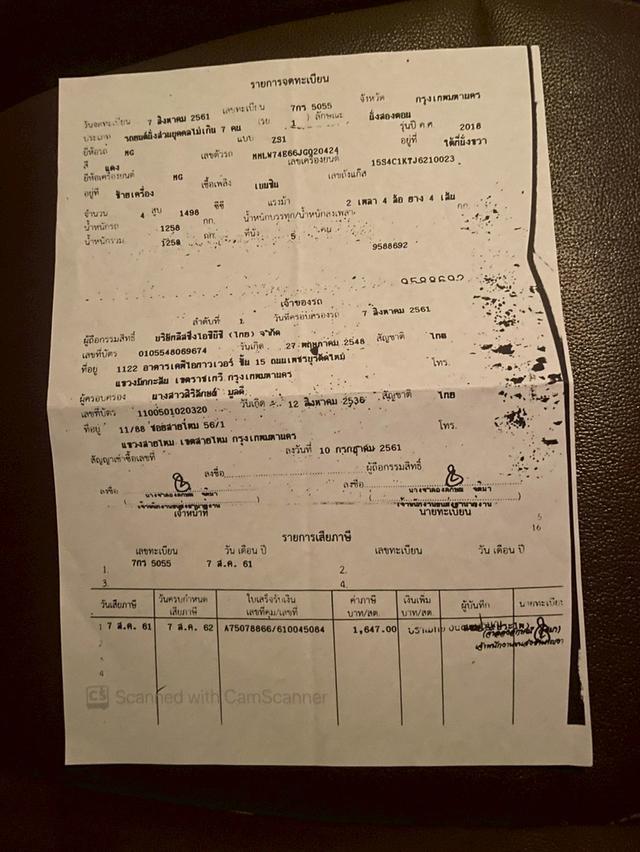 รายการจดทะเบียน
วันจดทะเบียน 7 สิงหาคม 2561 เลขทะเบียน 7กร 5055 จังหวัด กรุงเทพมหานคร
ประเภท รถยนต์นั่งส่วนบุคคลไม่เกิน 7 คน (รย. 1 ) ลักษณะ นั่งสองตอน
ยี่ห้อรถ MG แบบ ZS1 รุ่นปี ค.ศ. 2018
สี แดง เลขตัวรถ MMLW74E66JG020424 อยู่ที่ ใต้ที่นั่งขวา
ยี่ห้อเครื่องยนต์ MG เลขเครื่องยนต์ 15S4C1KTJ6210023
อยู่ที่ ซ้ายเครื่อง เชื้อเพลิง เบนซิน เลขถังแก๊ส
จำนวน 4 สูบ 1498 ซีซี แรงม้า 2 เพลา 4 ล้อ ยาง 4 เส้น
น้ำหนักรถ 1258 กก. น้ำหนักบรรทุก/น้ำหนักลงเพลา กก.
น้ำหนักรวม 1258 กก. ที่นั่ง 5 คน
9588692
เจ้าของรถ
ลำดับที่ 1 วันที่ครอบครองรถ 7 สิงหาคม 2561
ผู้ถือกรรมสิทธิ์ บริษัทลีสซิ่งไอซีบีซี (ไทย) จำกัด
เลขที่บัตร 0105548069674 วันเกิด 27 พฤษภาคม 2548 สัญชาติ ไทย
ที่อยู่ 1122 อาคารเคพีไอทาวเวอร์ ชั้น 15 ถนนเพชรบุรีตัดใหม่ โทร.
แขวงมักกะสัน เขตราชเทวี กรุงเทพมหานคร
ผู้ครอบครอง นางสาวสิริลักษณ์ มูลดี
เลขที่บัตร 1100501020320 วันเกิด 12 สิงหาคม 2536 สัญชาติ ไทย
ที่อยู่ 11/88 ซอยสายไหม 56/1 โทร.
แขวงสายไหม เขตสายไหม กรุงเทพมหานคร
สัญญาเช่าซื้อเลขที่ ลงวันที่ 10 กรกฎาคม 2561
ลงชื่อ ผู้ถือกรรมสิทธิ์
ลงชื่อ ลงชื่อ
เจ้าหน้าที่ นายทะเบียน
5
16
รายการเสียภาษี
เลขทะเบียน วัน เดือน ปี เลขทะเบียน วัน เดือน ปี
1. 7กร 5055 7 ส.ค. 61 2.
3. 4.
วันเสียภาษี วันครบกำหนดเสียภาษี ใบเสร็จรับเงิน เลขที่คุม/เลขที่ ค่าภาษี บาท/สต. เงินเพิ่ม บาท/สต. ผู้บันทึก นายทะเบียน
1 7 ส.ค. 61 7 ส.ค. 62 A75078866/610045084 1,647.00
2
3
4
CS Scanned with CamScanner